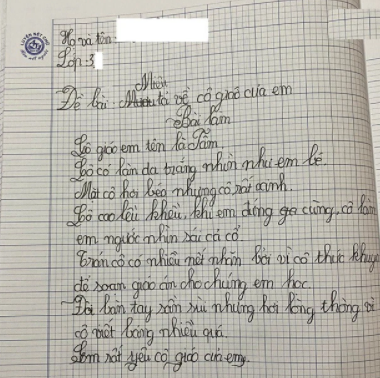 LUYỆN NÉT CHỮ
Họ và tên:
Lớp: 3
Miêu
Đề bài: tả về cô giáo của em
Bài làm
Cô giáo em tên là Tâm.
Cô có làn da trắng nhìn như em bé.
Mặt cô hơi béo nhưng cô rất xinh.
Cô cao lêu khêu, khi em đứng gần cũng, cô làm
em ngước nhìn sái cả cổ.
Trán cô có nhiều nét nhăn bởi vì cô thức khuya
để soạn giáo án cho chúng em học.
Đôi bàn tay sần sùi nhưng hơi lòng thòng vì
cô viết bảng nhiều quá.
Em rất yêu cô giáo của em.